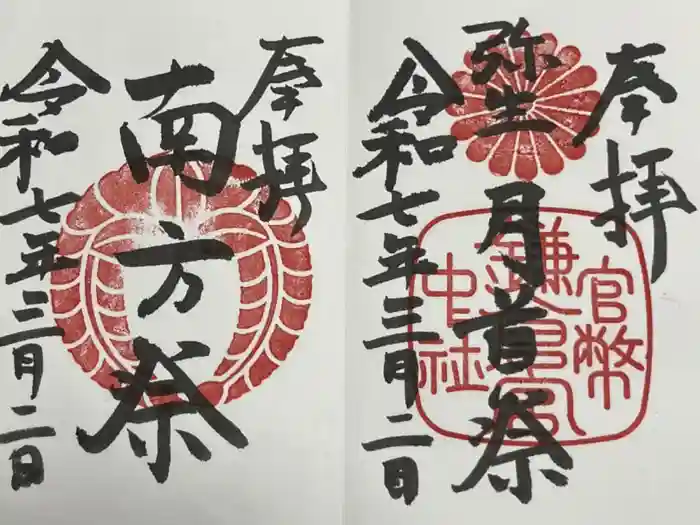 奉拝
弥生 月首祭
官幣
鎌倉宮
中社
令和七年三月二日
奉拝
南方祭
令和七年三月二日